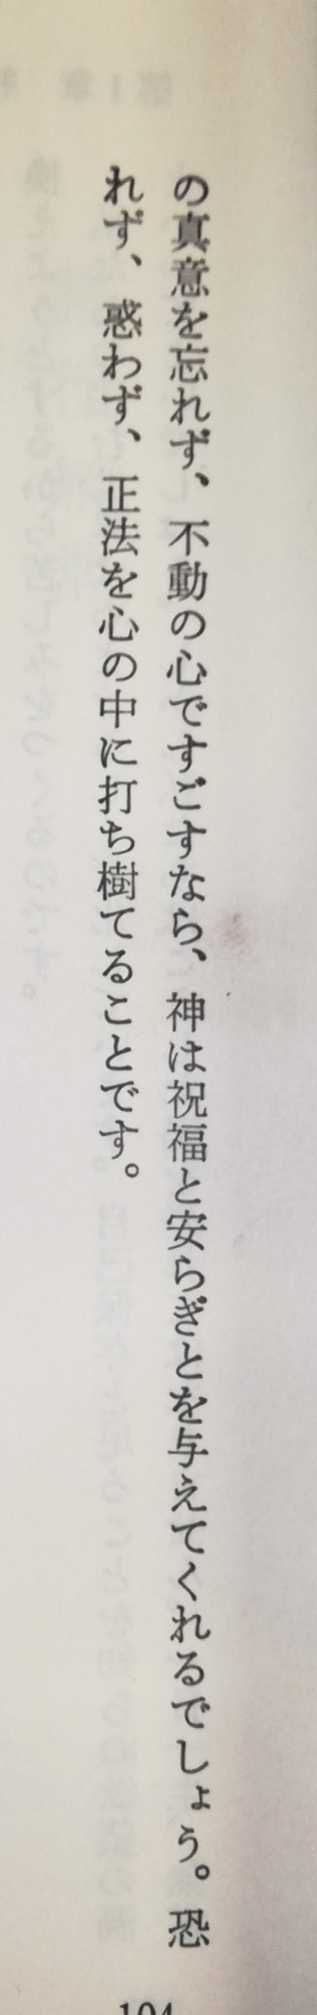 の真意を忘れず、不動の心ですごすなら、神は祝福と安らぎとを与えてくれるでしょう。恐
れず、惑わず、正法を心の中に打ち樹てることです。
104